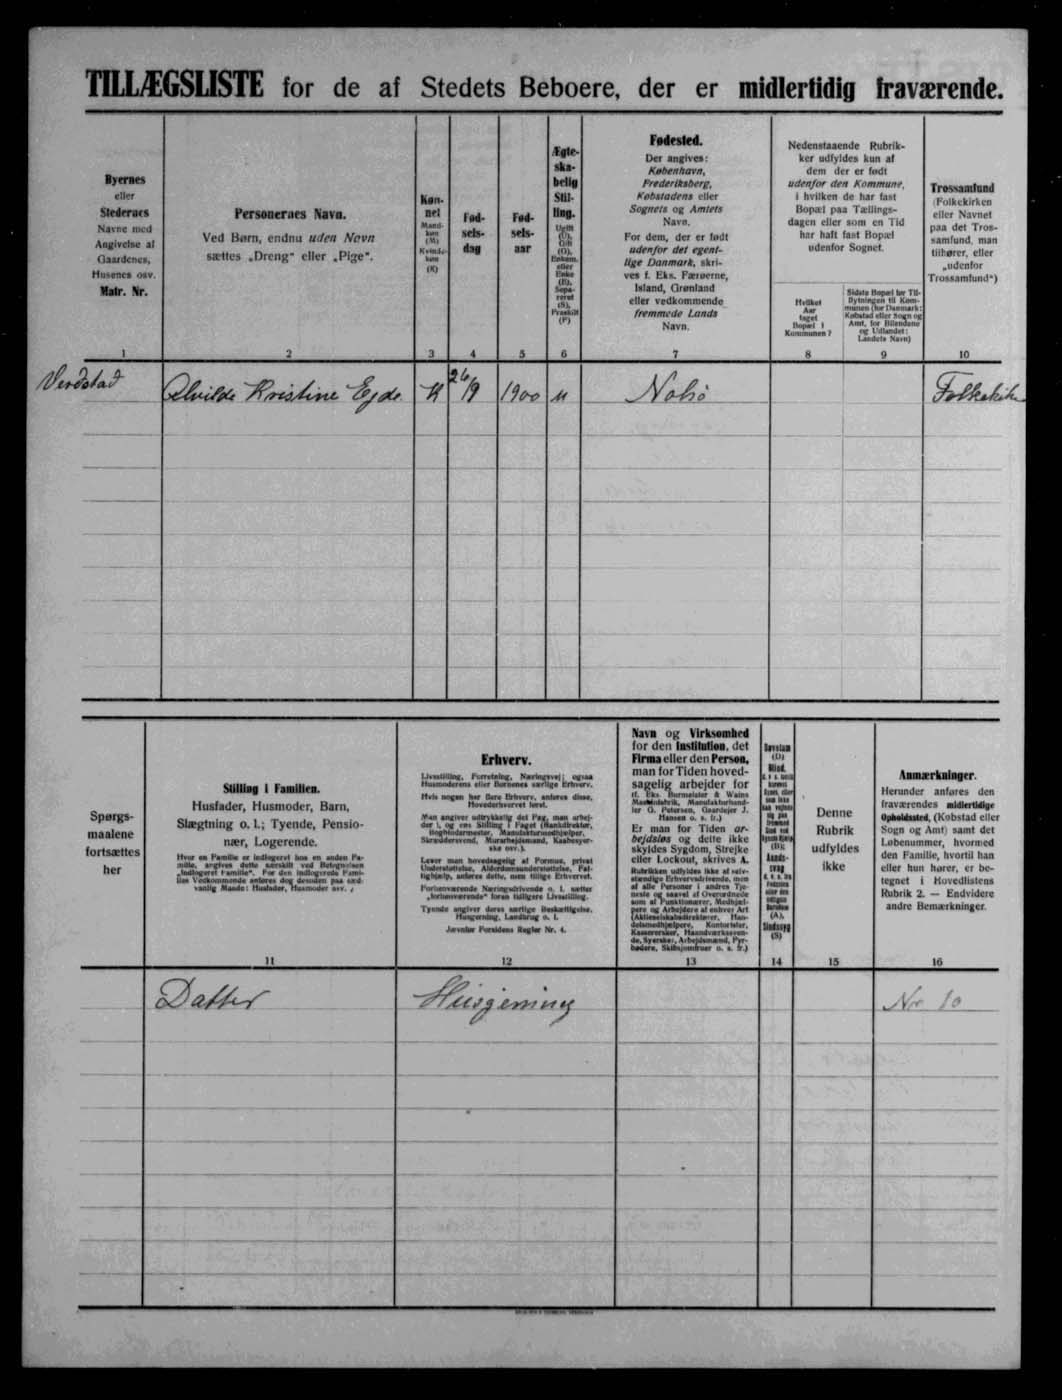 TILLÆGSLISTE for de af Stedets Beboere, der er midlertidig fraværende.
Byernes
eller
Stedernes
Navne med
Angivelse af
Gaardenes,
Husenes osv.
Matr. Nr.
Personernes Navn.
Ved Børn, endnu uden Navn
sættes „Dreng“ eller „Pige“.
Køn-
net
Mand-
køn
(M)
Kvinde-
køn
(K)
Fød-
sels-
dag
Fød-
sels-
aar
Ægte-
ska-
belig
Stil-
ling.
Ugift
(U),
Gift
(G),
Enkem.
eller
Enke
(E),
Sepa-
reret
(S),
Fraskilt
(F)
Fødested.
Der angives:
København,
Frederiksberg,
Købstadens eller
Sognets og Amtets
Navn.
For dem, der er født
udenfor det egent-
lige Danmark, skri-
ves f. Eks. Færøerne,
Island, Grønland
eller vedkommende
fremmede Lands
Navn.
Nedenstaaende Rubrik-
ker udfyldes kun af
dem der er født
udenfor den Kommune,
i hvilken de har fast
Bopæl paa Tællings-
dagen eller som en Tid
har haft fast Bopæl
udenfor Sognet.
Hvilket
Aar
taget
Bopæl i
Kommunen?
Sidste Bopæl før Til-
flytningen til Kom-
munen (for Danmark:
Købstad eller Sogn og
Amt, for Bilandene
og Udlandet:
Landets Navn)
Trossamfund
(Folkekirken
eller Navnet
paa det Tros-
samfund, man
tilhører, eller
„udenfor
Trossamfund“)
1 2 3 4 5 6 7 8 9 10
Alvilde Kristine Ejde K 26/9 1900 U Nolsö
Spørgs-
maalene
fortsættes
her
Stilling i Familien.
Husfader, Husmoder, Barn,
Slægtning o. l.; Tyende, Pensio-
nær, Logerende.
Hvor en Familie er indlogeret hos en anden Fa-
milie, angives dette særskilt ved Betegnelsen
„indlogeret Familie“. For den indlogerede Fami-
lies Vedkommende anføres dog desuden paa sæd-
vanlig Maade: Husfader, Husmoder osv.
Erhverv.
Livsstilling, Forretning, Næringsvej; ogsaa
Husmoderens eller Børnenes særlige Erhverv.
Hvis nogen har flere Erhverv, anføres disse,
Hovederhvervet først.
Man angiver udtrykkelig det Fag, man arbej-
der i, og ens Stilling i Faget (Bankdirektør,
Bogbindermester, Manufakturmedhjælper,
Skræddersvend, Murarbejdsmand, Kaabesyer-
ske osv.).
Lever man hovedsagelig af Formue, privat
Understøttelse, Alderdomsunderstøttelse, Fat-
tighjælp, anføres dette, men tillige Erhvervet.
Forhenværende Næringsdrivende o. l. sætter
„forhenværende“ foran tidligere Livsstilling.
Tyende angiver deres særlige Beskæftigelse,
Husgerning, Landbrug o. l.
Jævnfør Forsidens Regler Nr. 4.
Navn og Virksomhed
for den Institution, det
Firma eller den Person,
man for Tiden hoved-
sagelig arbejder for
(f. Eks. Burmeister & Wains
Maskinfabrik, Manufakturhand-
ler G. Petersen, Gaardejer J.
Hansen o. s. fr.)
Er man for Tiden ar-
bejdsløs og dette ikke
skyldes Sygdom, Strejke
eller Lockout, skrives A.
Rubrikken udfyldes ikke af selv-
stændige Erhvervsdrivende, men
af alle Personer i andres Tje-
neste og saavel af Overordnede
som af Funktionærer, Medhjæl-
pere og Arbejdere af enhver Art
(Aktieselskabsdirektører, Han-
delsmedhjælpere, Kontorister,
Kasserersker, Haandværkssven-
de, Syersker, Arbejdsmænd, Fyr-
bødere, Skibsjomfruer o. s. fr.)
Døvstum
(D)
Blind,
(B);
Aands-
svag
(A),
Sindssyg
(S)
Denne
Rubrik
udfyldes
ikke
Anmærkninger.
Herunder anføres den
fraværendes midlertidige
Opholdssted, (Købstad eller
Sogn og Amt) samt det
Løbenummer, hvormed
den Familie, hvortil han
eller hun hører, er be-
tegnet i Hovedlistens
Rubrik 2. — Endvidere
andre Bemærkninger.
11 12 13 14 15 16
Datter Husgerning Nr 10